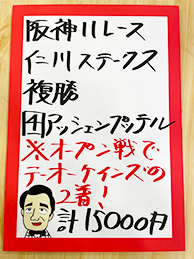 阪神11レース
仁川ステークス
複勝
11アッシェンプッテル
※オープン戦で
テーオーケインズの
2着!
計15000円